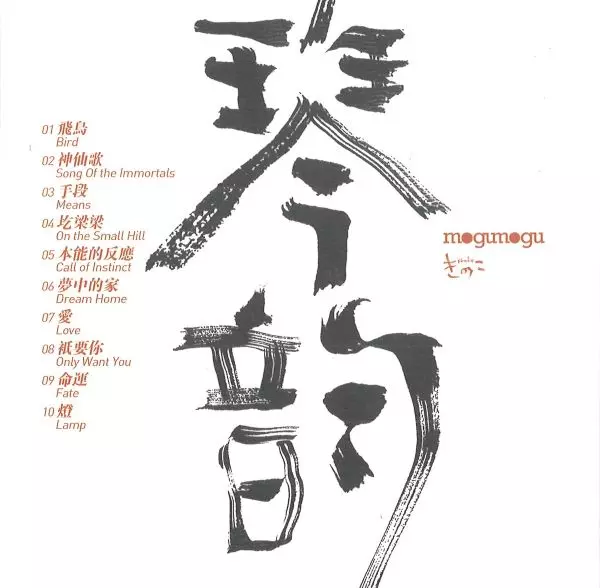 01 飛鳥
Bird
02 神仙歌
Song Of the Immortals
03 手段
Means
04 圪梁梁
On the Small Hill
05 本能的反應
Call of Instinct
06 夢中的家
Dream Home
07 愛
Love
08 衹要你
Only Want You
09 命運
Fate
10 燈
Lamp
琴
韵
mogumogu